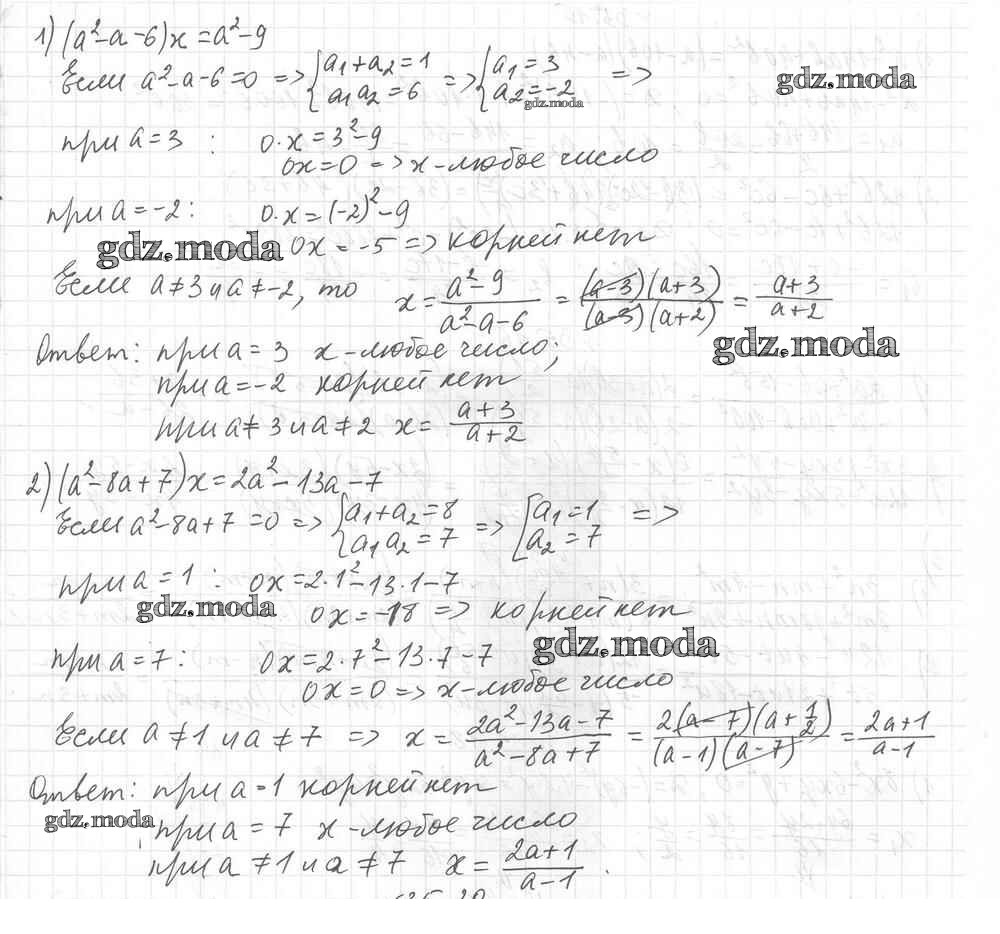 1) (a²-a-6)x = a²-9
Если a²-a-6=0 => { a₁+a₂=1 a₁a₂=6 => { a₁=3 a₂=-2 =>
gdz.moda
gdz.moda
при a=3 : 0·x=3²-9
0x=0 => x-любое число
при a=-2: 0·x=(-2)²-9
gdz.moda
0x=-5 => корней нет
Если a≠3 и a≠-2, то x = (a²-9)/(a²-a-6) = ((a-3)(a+3))/((a-3)(a+2)) = (a+3)/(a+2)
gdz.moda
Ответ: при a=3 x-любое число;
при a=-2 корней нет
при a≠3 и a≠2 x = (a+3)/(a+2)
2) (a²-8a+7)x=2a²-13a-7
Если a²-8a+7=0 => { a₁+a₂=8 a₁a₂=7 => [ a₁=1 a₂=7 =>
при a=1 : 0x=2·1²-13·1-7
gdz.moda
0x=-18 => корней нет
gdz.moda
при a=7: 0x=2·7²-13·7-7
0x=0 => x-любое число
Если a≠1 и a≠7 => x = (2a²-13a-7)/(a²-8a+7) = (2(a-7)(a+1/2))/((a-1)(a-7)) = (2a+1)/(a-1)
Ответ: при a=1 корней нет
gdz.moda
при a=7 x-любое число
при a≠1 и a≠7 x = (2a+1)/(a-1).